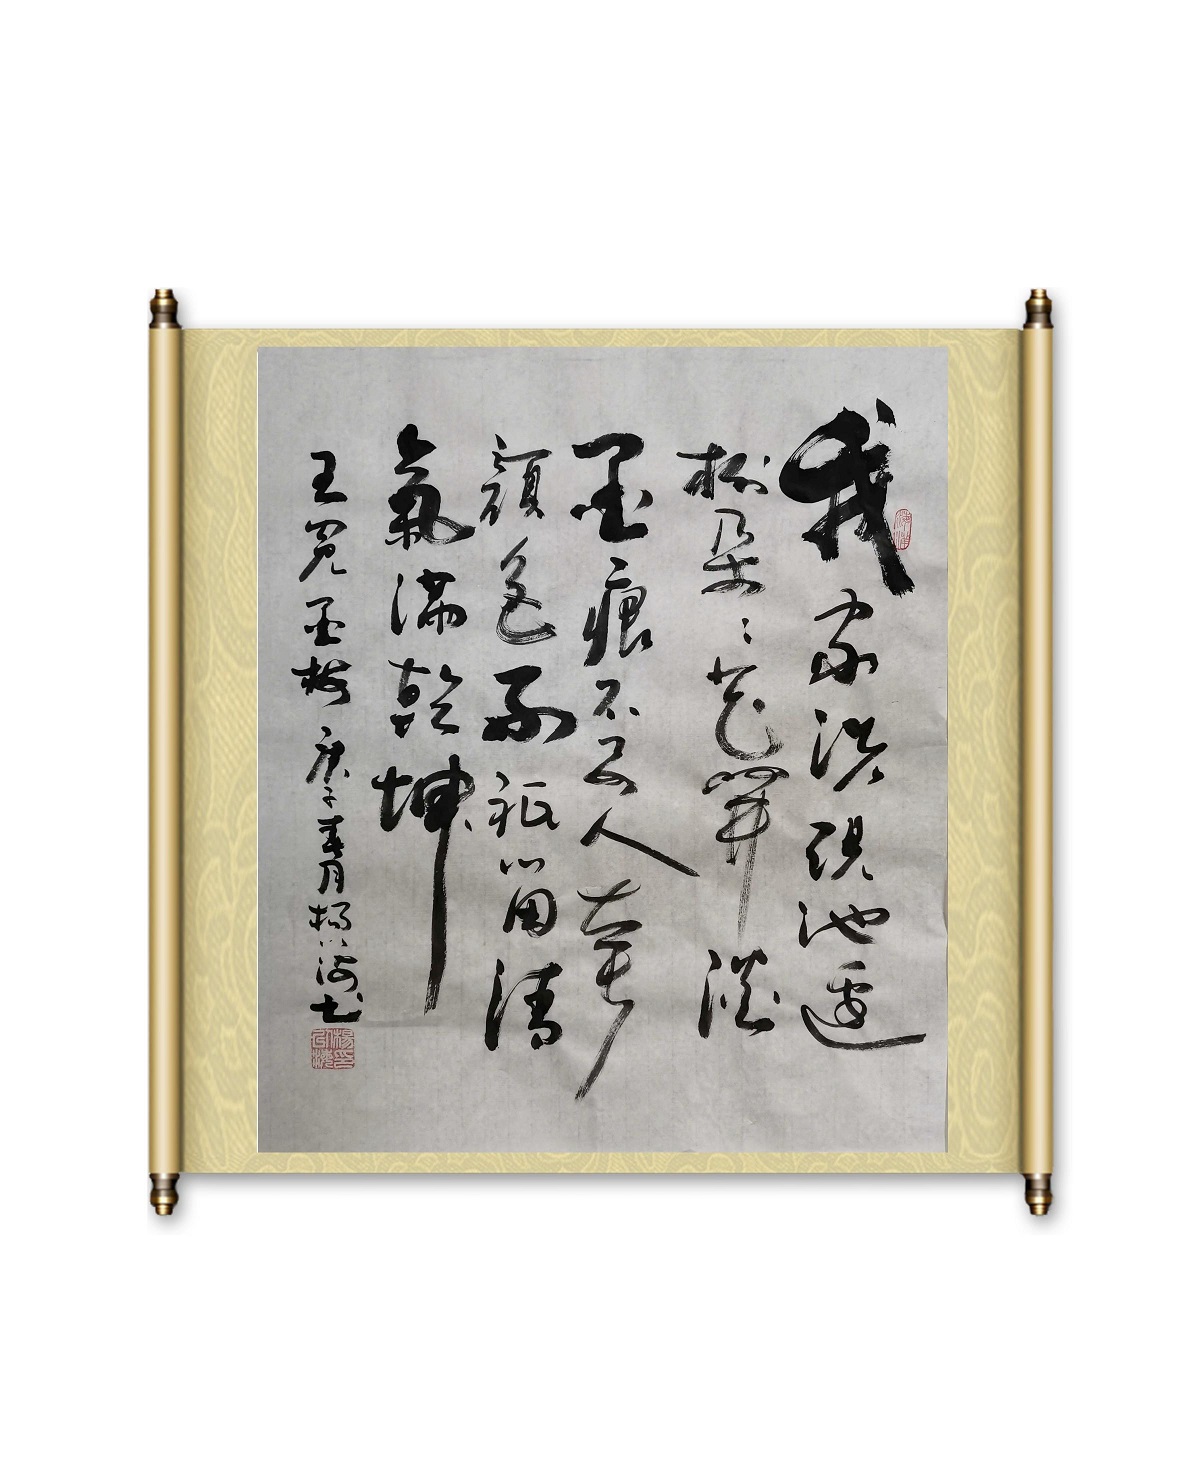 我家洗硯池邊
树朵〻花開淡
墨痕不要人夸
顏色好祇留清
氣滿乾坤
王冕墨梅 庚子春月 楊海书